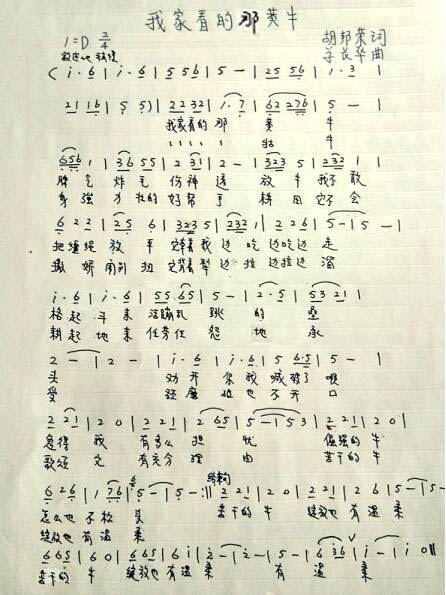 我家看的那黄牛
1=D 2/4
胡邦荣词
曲
(i·6 | i·6 | 5 5 6 5 | 5 — | 2 5 5 6 | 1·3 |
2 1 1 6 | 5 5) | 2 2 3 2 | 1·7 | 6 2 2 7 6 | 5 — |
我家看的那 黄 牛
6 5 6 1 | 3 6 5 5 | 2 3 1 | 2 — | 3 2 3 5 | 2 3 2 1 |
脾气 炸毛 伤神透 放牛我不敢
身强力壮的好帮手 耕田它不会
6 2 2 | 2 5 6 | 3 2 3 5 | 2 3 2 1 | 2 2 6 | 5 — | 5 — |
把缰绳放 平 我边吃边吃边走
撒娇闹别扭 它背着犁边拉边拉边溜
i·6 | i·6 | 5 5 6 5 | 5 — | 2·5 | 5 3 2 1 |
格起斗来 活蹦乱跳的
耕起地来任劳任怨 地 承
2 — | 2 — | i·6 | i·6 | 5 6·5 | 5 — |
头 劝开架我喊破了喉
受 拉也不开口
2 2 1 | 2 0 | 2 2 1 | 2 6 5 | 5 — | 5 3 | 2 2 1 | 2 0 |
急得 我 有多么担忧 倔强的牛
歌颂 它 有充分理由 苦干的牛
6 2 6 | 1 7 6 | 5 — | 5 — :|| 2 2 1 | 2 0 | 2 2 1 | 2 6 | 5 — | 5 — |
怎么也不松头 苦干的牛 绽放也有温柔
绽放也有温柔
结束句
6 6 5 | 6 0 | 6 6 5 | 6 i | 2 — | 2 — | 5 — | 6 3 6 | i — | i — | i 0 ||
苦干的 牛 绽放也有温柔 有 温 柔